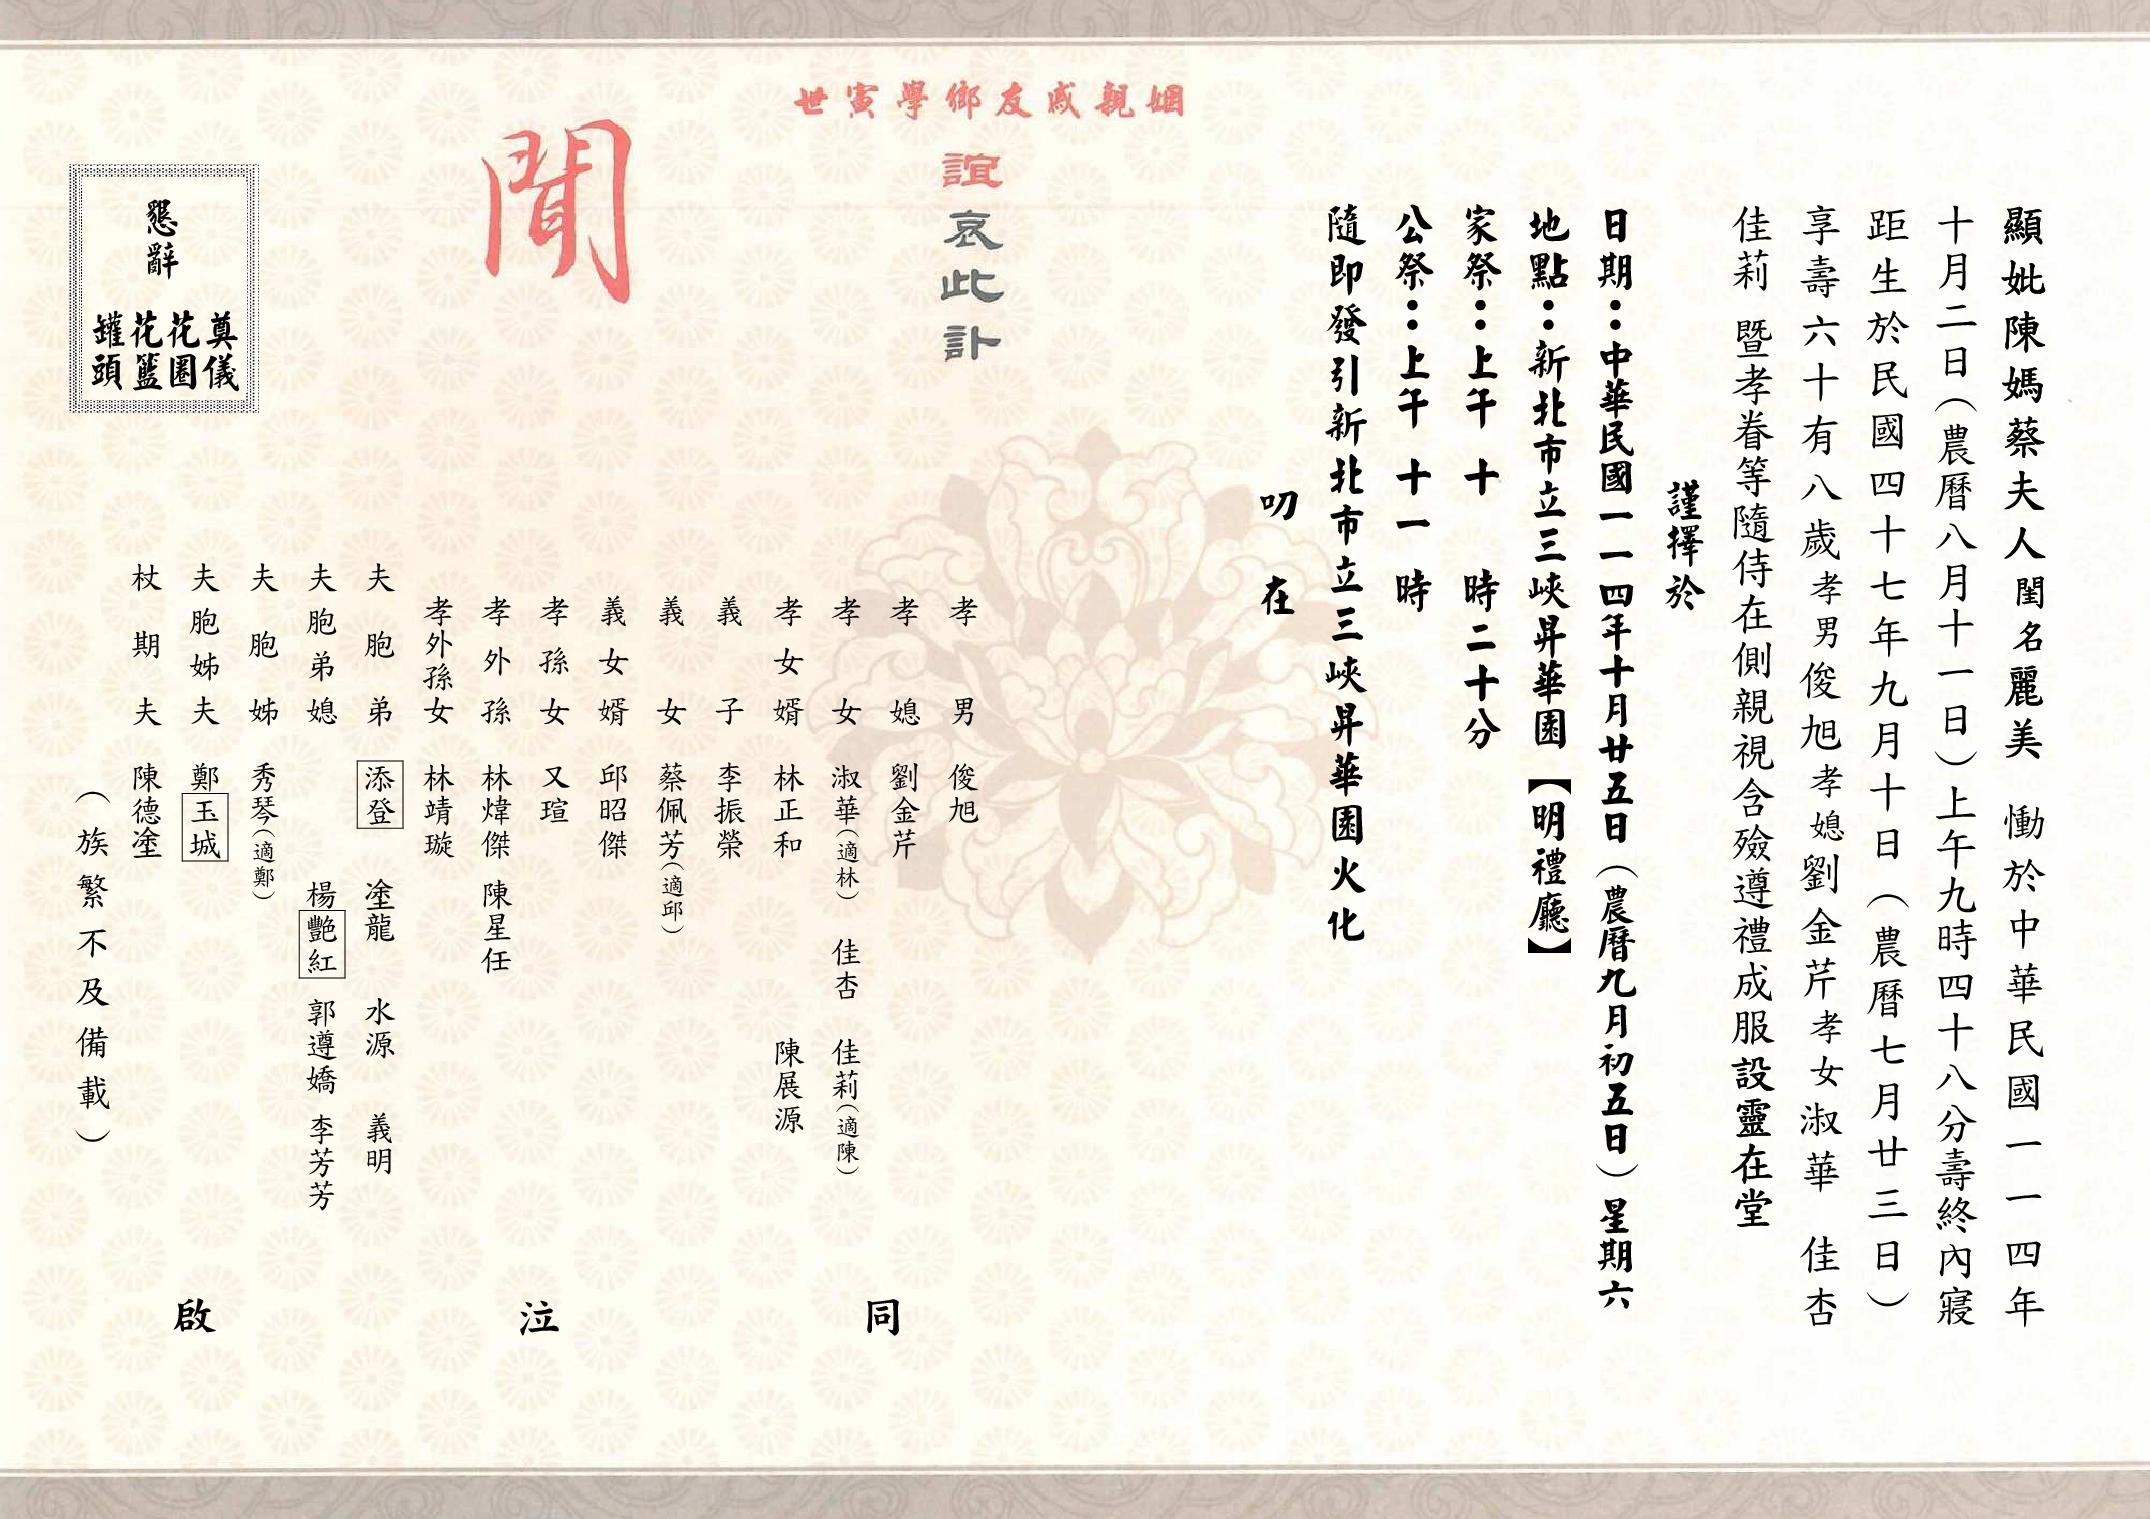 顯妣陳媽蔡夫人閨名麗美 慟於中華民國一一四年
十月二日(農曆八月十一日)上午九時四十八分壽終內寢
距生於民國四十七年九月十日(農曆七月廿三日)
享壽六十有八歲孝男俊旭孝媳劉金芹孝女淑華 佳杏
佳莉 暨孝眷等隨侍在側親視含殮遵禮成服設靈在堂
謹擇於
日期:中華民國一一四年十月廿五日(農曆九月初五日)星期六
地點:新北市立三峽昇華園【明禮廳】
家祭:上午 十 時二十分
公祭:上午 十一 時
隨即發引新北市立三峽昇華園火化
叨 在
姻親戚友鄉學寅世
誼哀此訃
聞
孝男 俊旭
孝媳 劉金芹
孝女 淑華(適林) 佳杏 佳莉(適陳)
孝女婿 林正和 陳展源
義子 李振榮
義女 蔡佩芳(適邱)
義女婿 邱昭傑
孝孫女 又瑄
孝外孫 林煒傑 陳星任
孝外孫女 林靖璇
夫胞弟 添登 塗龍 水源 義明
夫胞弟媳 楊艷紅 郭遵嬌 李芳芳
夫胞姊 秀琴(適鄭)
夫胞姊夫 鄭玉城
杖期夫 陳德塗
(族繁不及備載)
同 泣 啟
懇辭
奠儀
花圈
花籃
罐頭